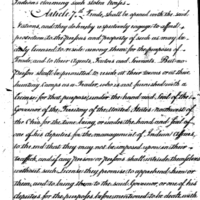 Indians claiming such stolen horses.
Article 7th Trade, shall be opened with the said
Nations, and they do hereby respectively engage to afford
protection to the persons and property of such as may be
duly licensed to reside among them for the purposes of
Trade, and to their Agents, Factors and Servants. But no
person shall be permitted to reside at their towns or their
hunting Camps as a Trader, who is not furnished with a
License for that purpose, under the hand and Seal of the
Governor of the Territory of the United States Northwest of
the Ohio, for the time being, or under the hand and Seal of
one of his deputies for the management of Indian Affairs,
to the end that they may not be imposed upon in their
traffick, and if any person or persons shall intrude themselves
without such License, they promise to apprehend him or
them, and to bring them to the said Governor, or one of his
deputies for the purpose beforementioned to be dealt with